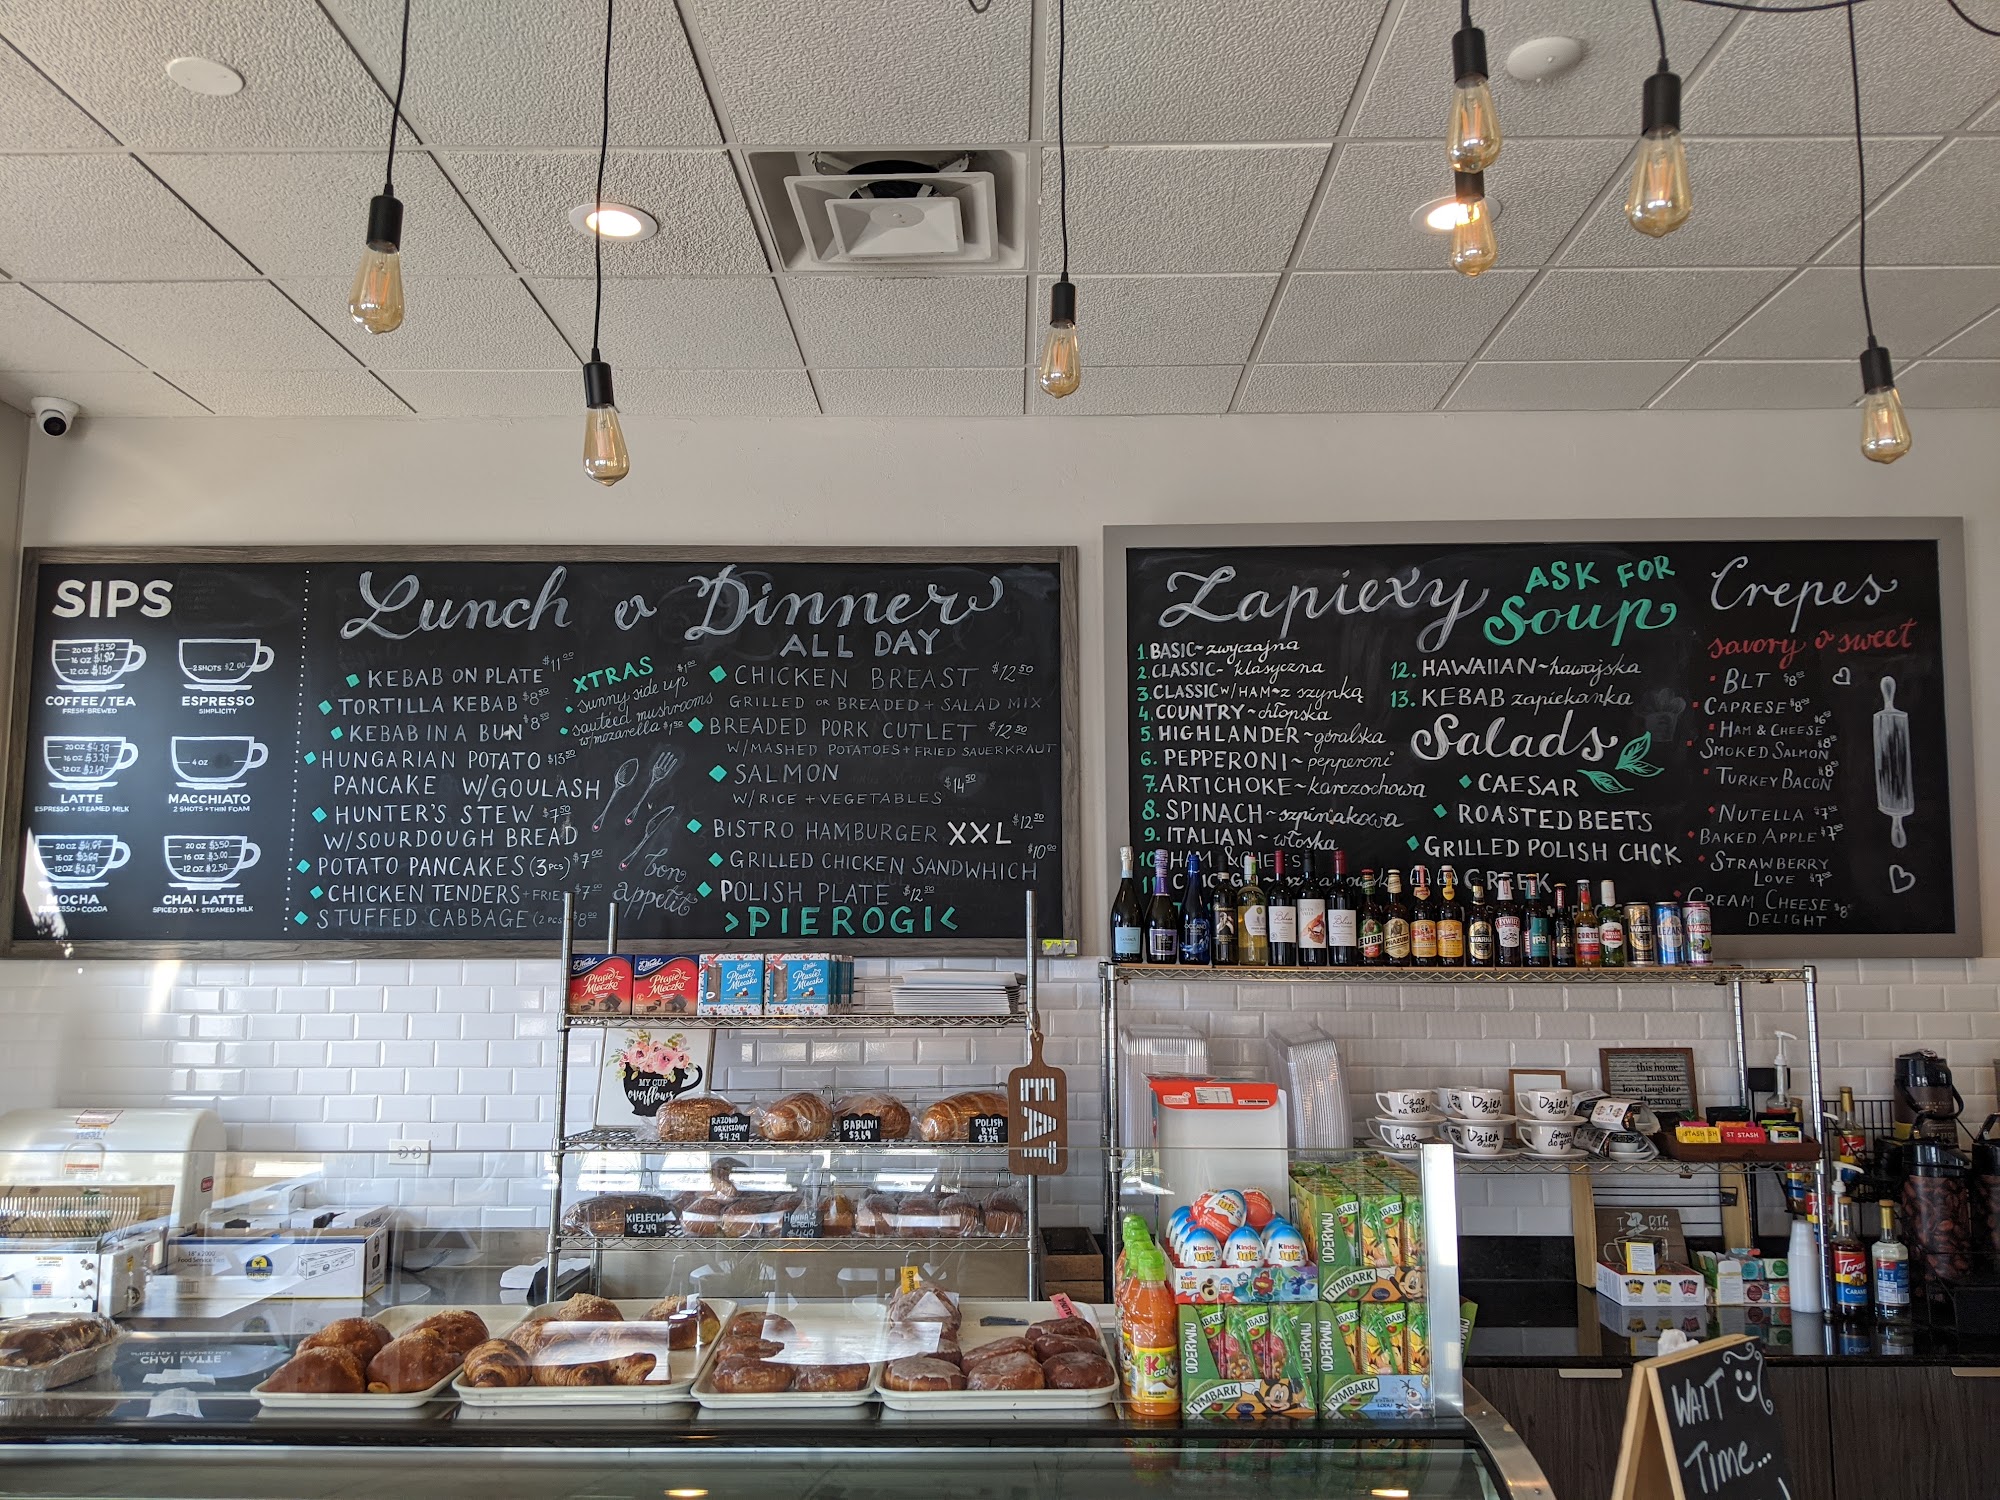 SIPS
20 OZ $2.50
16 OZ $1.90
12 OZ $1.50
COFFEE/TEA
FRESH-BREWED
2 SHOTS $2.00
ESPRESSO
SIMPLICITY
20 OZ $4.29
16 OZ $3.79
12 OZ $2.69
LATTE
ESPRESSO + STEAMED MILK
4 OZ
MACCHIATO
2 SHOTS + THIN FOAM
16 OZ $3.69
12 OZ $2.69
MOCHA
ESPRESSO + COCOA
20 OZ $3.50
16 OZ $3.00
12 OZ $2.50
CHAI LATTE
SPICED TEA + STEAMED MILK
Lunch & Dinner
ALL DAY
KEBAB ON PLATE $11.00
TORTILLA KEBAB $8.50
KEBAB IN A BUN $8.50
HUNGARIAN POTATO $13.50
PANCAKE W/GOULASH
HUNTER'S STEW $7.50
W/SOURDOUGH BREAD
POTATO PANCAKES (3pcs) $7.00
CHICKEN TENDERS + FRIES $7.00
STUFFED CABBAGE (2 pcs) $8.00
XTRAS
sunny side up $1.00
sautéed mushrooms
w/mozarella $1.50
bon
appetit
CHICKEN BREAST $12.50
GRILLED OR BREADED + SALAD MIX
BREADED PORK CUTLET $12.50
W/MASHED POTATOES + FRIED SAUERKRAUT
SALMON
W/RICE + VEGETABLES $14.50
BISTRO HAMBURGER XXL $12.50
GRILLED CHICKEN SANDWHICH $10.00
POLISH PLATE $12.50
>PIEROGI<
Zapiexy
1. BASIC~zwyczajna
2. CLASSIC~klasyczna
3. CLASSIC W/HAM~z szynką
4. COUNTRY~chłopska
5. HIGHLANDER~góralska
6. PEPPERONI~pepperoni
7. ARTICHOKE~karczochowa
8. SPINACH~szpinakowa
9. ITALIAN~włoska
10. HAM & CHEESE
ASK FOR
Soup
12. HAWAIIAN~hawajska
13. KEBAB zapiekanka
Salads
CAESAR
ROASTED BEETS
GRILLED POLISH CHCK
GREEK
Crepes
savory & sweet
BLT $8.50
CAPRESE $8.00
HAM & CHEESE $6.50
SMOKED SALMON $8.50
TURKEY BACON $8.50
NUTELLA $7.00
BAKED APPLE $7.00
STRAWBERRY
LOVE $7.50
CREAM CHEESE
DELIGHT $8
ŻUBR
WARKA
E. Wedel
Ptasie
Mleczko
E. Wedel
Ptasie
Mleczko
Ptasie
Mleczko
Ptasie
Mleczko
MY CUP
overflows
RAZOWO
ORKISZOWY
$4.29
BABUNI
$3.69
POLISH
RYE
$3.29
EAT
KIELECKI
$2.49
HANNA'S
SPECIAL
$4.49
this home
runs on
love, laughter
Czas
na relaks
Dzień
dobry
Dzień
dobry
Czas
Dzień
dobry
STASH
STASH
Kinder
Joy
Kinder
Joy
Kinder
Joy
ODERWIJ
TYMBARK
ODERWIJ
TYMBARK
TYMBARK
CHAI LATTE
Torani
CARAMEL
WAIT
TIME...